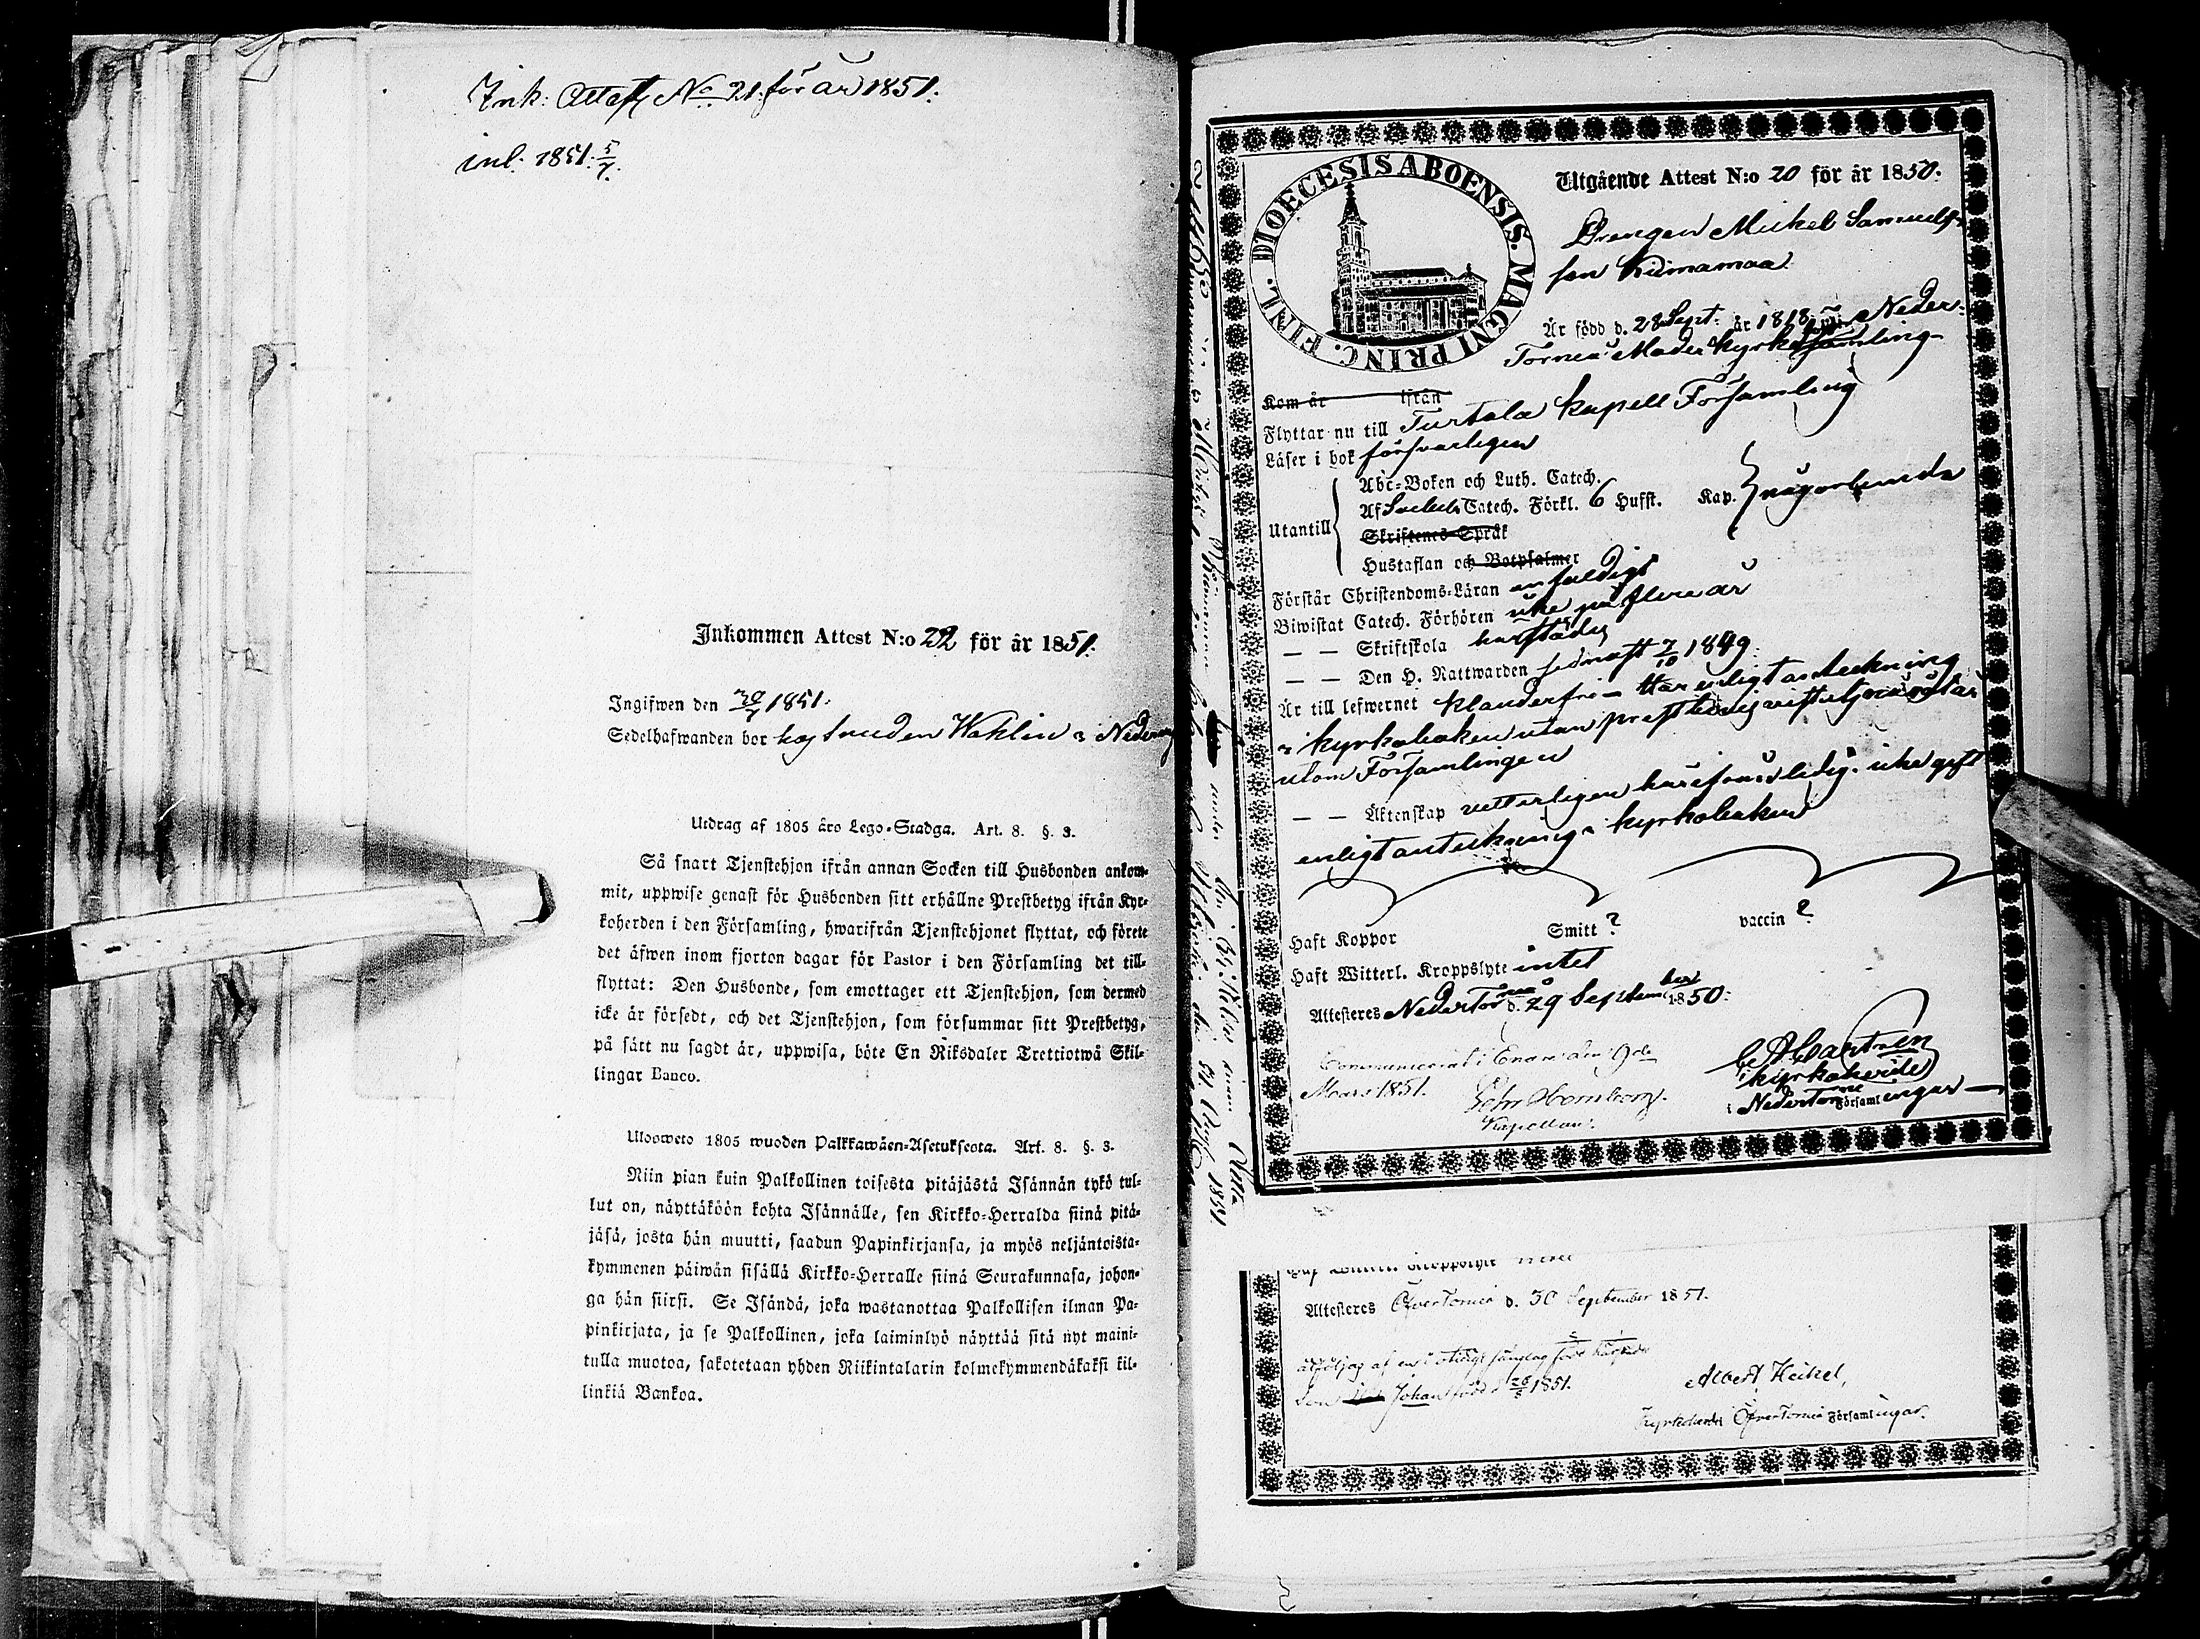 Ink: Attest No 21. för år 1851.
inl. 1851. 5/7.
Inkommen Attest N:o 22 för år 1851.
Ingifwen den 30/7 1851.
Sedelhafwanden bor hos bruden Wahlin i Neder
Utdrag af 1805 års Lego-Stadga. Art. 8. §. 3.
Så snart Tjenstehjon ifrån annan Socken till Husbonden ankom-
mit, uppwise genast för Husbonden sitt erhållne Prestbetyg ifrån Kyr-
koherden i den Församling, hwarifrån Tjenstehjonet flyttat, och förete
det äfwen inom fjorton dagar för Pastor i den Församling det till-
flyttat: Den Husbonde, som emottager ett Tjenstehjon, som dermed
icke är försedt, och det Tjenstehjon, som försummar sitt Prestbetyg,
på sätt nu sagdt är, uppwisa, böte En Riksdaler Trettiotwå Skil-
lingar Banco.
Ulosweto 1805 wuoden Palkkawäen-Asetuksesta. Art. 8. §. 3.
Niin pian kuin Palkollinen toisesta pitäjästä Isännän tykö tul-
lut on, näyttäköön kohta Isännälle, sen Kirkko-Herralda siinä pitä-
jäsä, josta hän muutti, saadun Papinkirjansa, ja myös neljäntoista-
kymmenen päiwän sisällä Kirkko-Herralle siinä Seurakunnasa, johon-
ga hän siirsi. Se Isändä, joka wastanottaa Palkollisen ilman Pa-
pinkirjata, ja se Palkollinen, joka laiminlyö näyttää sitä nyt maini-
tulla muotoa, sakotetaan yhden Riikintalarin kolmekymmendäkaksi kil-
linkiä Bankoa.
DIOECESIS ABOENSIS. MAGNI PRINC. FINL.
Utgående Attest N:o 20 för år 1850.
Drengen Mickel Samuels-
son Kuimamaa.
Är född d. 28 Sept: år 1818 i Neder-
Torneå Moder kyrko församling
Kom år ifrån
Flyttar nu till Turtola Kapell Församling
Läser i bok försvarligen
Utantill
Abc-Boken och Luth. Catech.
Af Svebelii Catech. Förkl. 6 Hufst. Kap. någorlunda
Skriftenes Språk
Hustaflan och Botpsalmer
Förstår Christendoms-Läran enfaldigt
Biwistat Catech. Förhören icke på flere år
— — Skriftskola
— — Den H. Nattwarden sednast 7/10 1849.
Är till lefwernet klanderfri — Har enligt anteckning
i kyrkoboken utan prestbetyg vistats
utom Församlingen
— — Äktenskap vetterligen ledig. icke gift
enligt anteckning i kyrkoboken
Haft Koppor Smitt ? vaccin ?
Haft Witterl. Kroppslyte intet
Attesteres NederTorneå d. 29 September 1850.
Communicerat i Enare den 9de
Mars 1851.
Kapellan.
C A Castrén
kyrkoherde
i NederTorneå Församlingar
Attesteres ÖfverTorneå d. 30 September 1851.
Johan född d 20/5 1851.
Albert Heikel,
Kyrkoherde i ÖfverTorneå Församlingar.